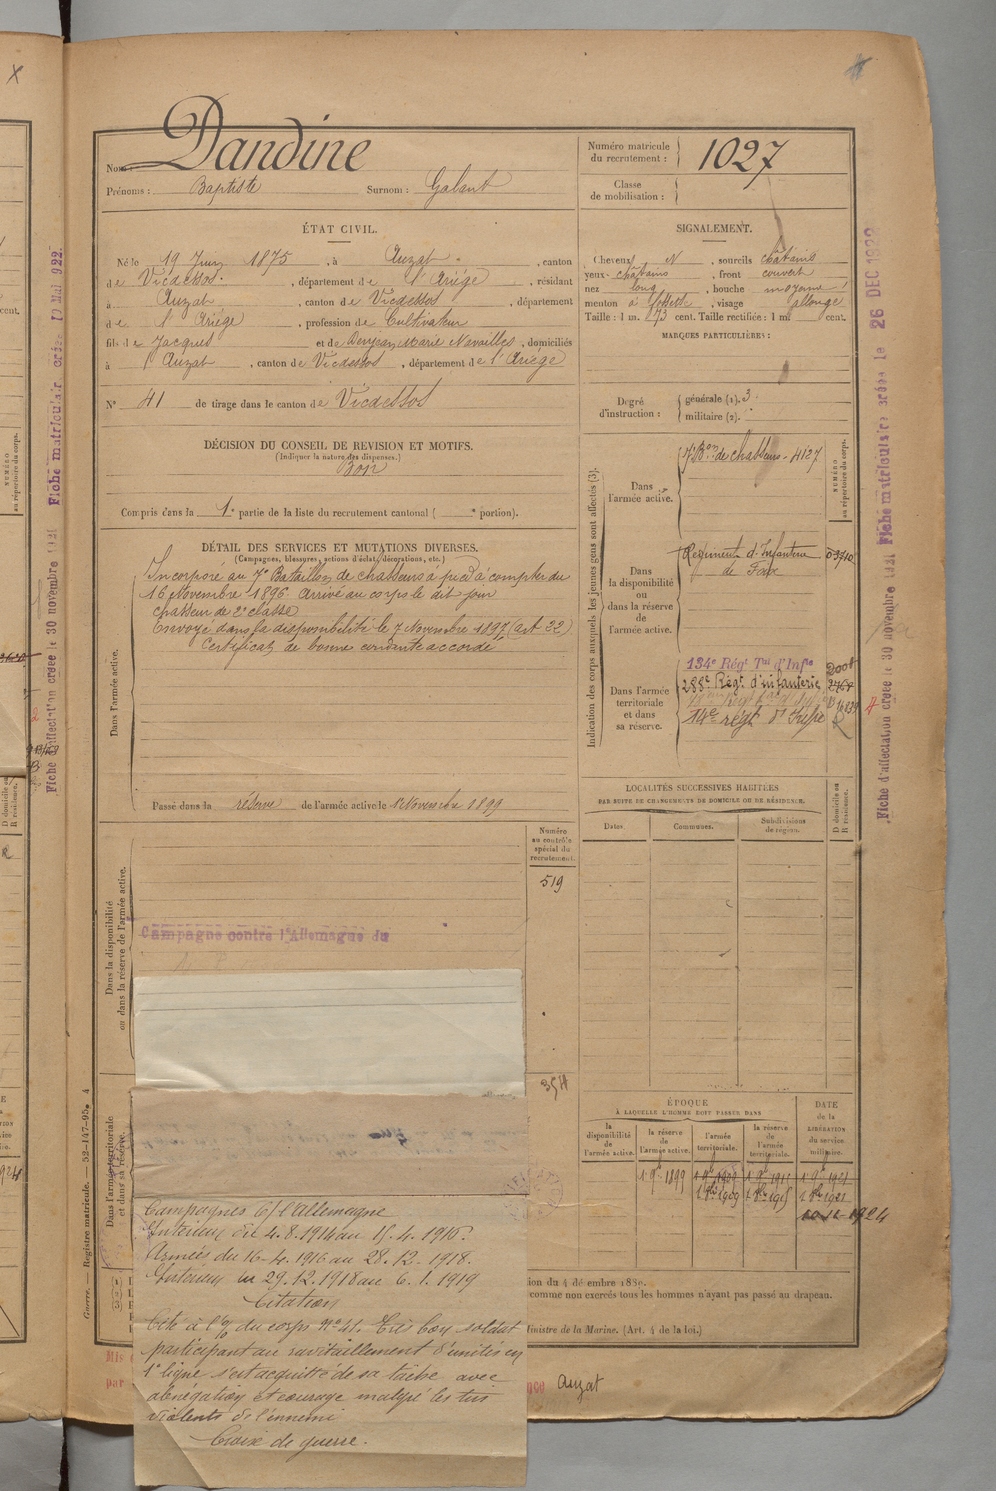 X
Nom : Dandine
Prénoms : Baptiste Surnom : Galant
Numéro matricule du recrutement : 1027
Classe de mobilisation :
ÉTAT CIVIL.
Né le 19 Juin 1875, à Auzat, canton
de Vicdessos, département de l'Ariège, résidant
à Auzat, canton de Vicdessos, département
de l'Ariège, profession de Cultivateur
fils de Jacques et de Denjean Marie Navailles, domiciliés
à Auzat, canton de Vicdessos, département de l'Ariège
N° 41 de tirage dans le canton de Vicdessos
SIGNALEMENT.
Cheveux N, sourcils châtains
yeux châtains, front couvert
nez long, bouche moyenne
menton à fossette, visage allongé
Taille : 1 m. 73 cent. Taille rectifiée : 1 m. cent.
MARQUES PARTICULIÈRES :
Degré d'instruction : générale (1). 3
militaire (2).
DÉCISION DU CONSEIL DE REVISION ET MOTIFS.
(Indiquer la nature des dispenses.)
Bon
Compris dans la 1e partie de la liste du recrutement cantonal ( e portion).
DÉTAIL DES SERVICES ET MUTATIONS DIVERSES.
(Campagnes, blessures, actions d'éclat, décorations, etc.)
Dans l'armée active.
Incorporé au 7e Bataillon de chasseurs à pied à compter du
16 Novembre 1896. Arrivé au corps le dit jour
chasseur de 2e classe
Envoyé dans la disponibilité le 7 Novembre 1897 (art 22)
Certificat de bonne conduite accordé
Passé dans la réserve de l'armée active le 1 Novembre 1899
Indication des corps auxquels les jeunes gens sont affectés (3).
NUMÉRO au répertoire du corps.
Dans l'armée active.
7e Bon de chasseurs - 4127
Dans la disponibilité ou dans la réserve de l'armée active.
Régiment d'Infanterie
de Foix
Dans l'armée territoriale et dans sa réserve.
134e Régt Tal d'Infie
288e Régt d'infanterie
14e régt d'Infie
LOCALITÉS SUCCESSIVES HABITÉES
PAR SUITE DE CHANGEMENTS DE DOMICILE OU DE RÉSIDENCE.
Dates.
Communes.
Subdivisions de région.
D domicile ou R résidence.
Numéro au contrôle spécial du recrutement.
519
Dans la disponibilité ou dans la réserve de l'armée active.
Campagne contre l'Allemagne du
354
Dans l'armée territoriale et dans sa réserve.
Campagnes c/ l'Allemagne
Intérieur du 4.8.1914 au 15.4.1916.
Armées du 16-4.1916 au 28.12.1918.
Intérieur du 29.12.1918 au 6.1.1919
Citation
Cité à l'o/ du corps N° 41. Très bon soldat
participant au ravitaillement d'unités en
1e ligne s'est acquitté de sa tâche avec
abnégation et courage malgré les tirs
violents de l'ennemi
Croix de guerre.
ÉPOQUE
À LAQUELLE L'HOMME DOIT PASSER DANS
la disponibilité de l'armée active.
la réserve de l'armée active.
l'armée territoriale.
la réserve de l'armée territoriale.
DATE de la LIBÉRATION du service militaire.
1 9e 1899
10.11.1924
comme non exercés tous les hommes n'ayant pas passé au drapeau.
Ministre de la Marine. (Art. 4 de la loi.)
Auzat
Guerre. — Registre matricule. — 52-147-95. 4
Fiche d'affectation créée le 30 novembre 1921 Fiche matriculaire créée le 26 DEC 1922
Fiche d'affectation créée le 30 novembre 1921 Fiche matriculaire créée 10 MAI 1922.